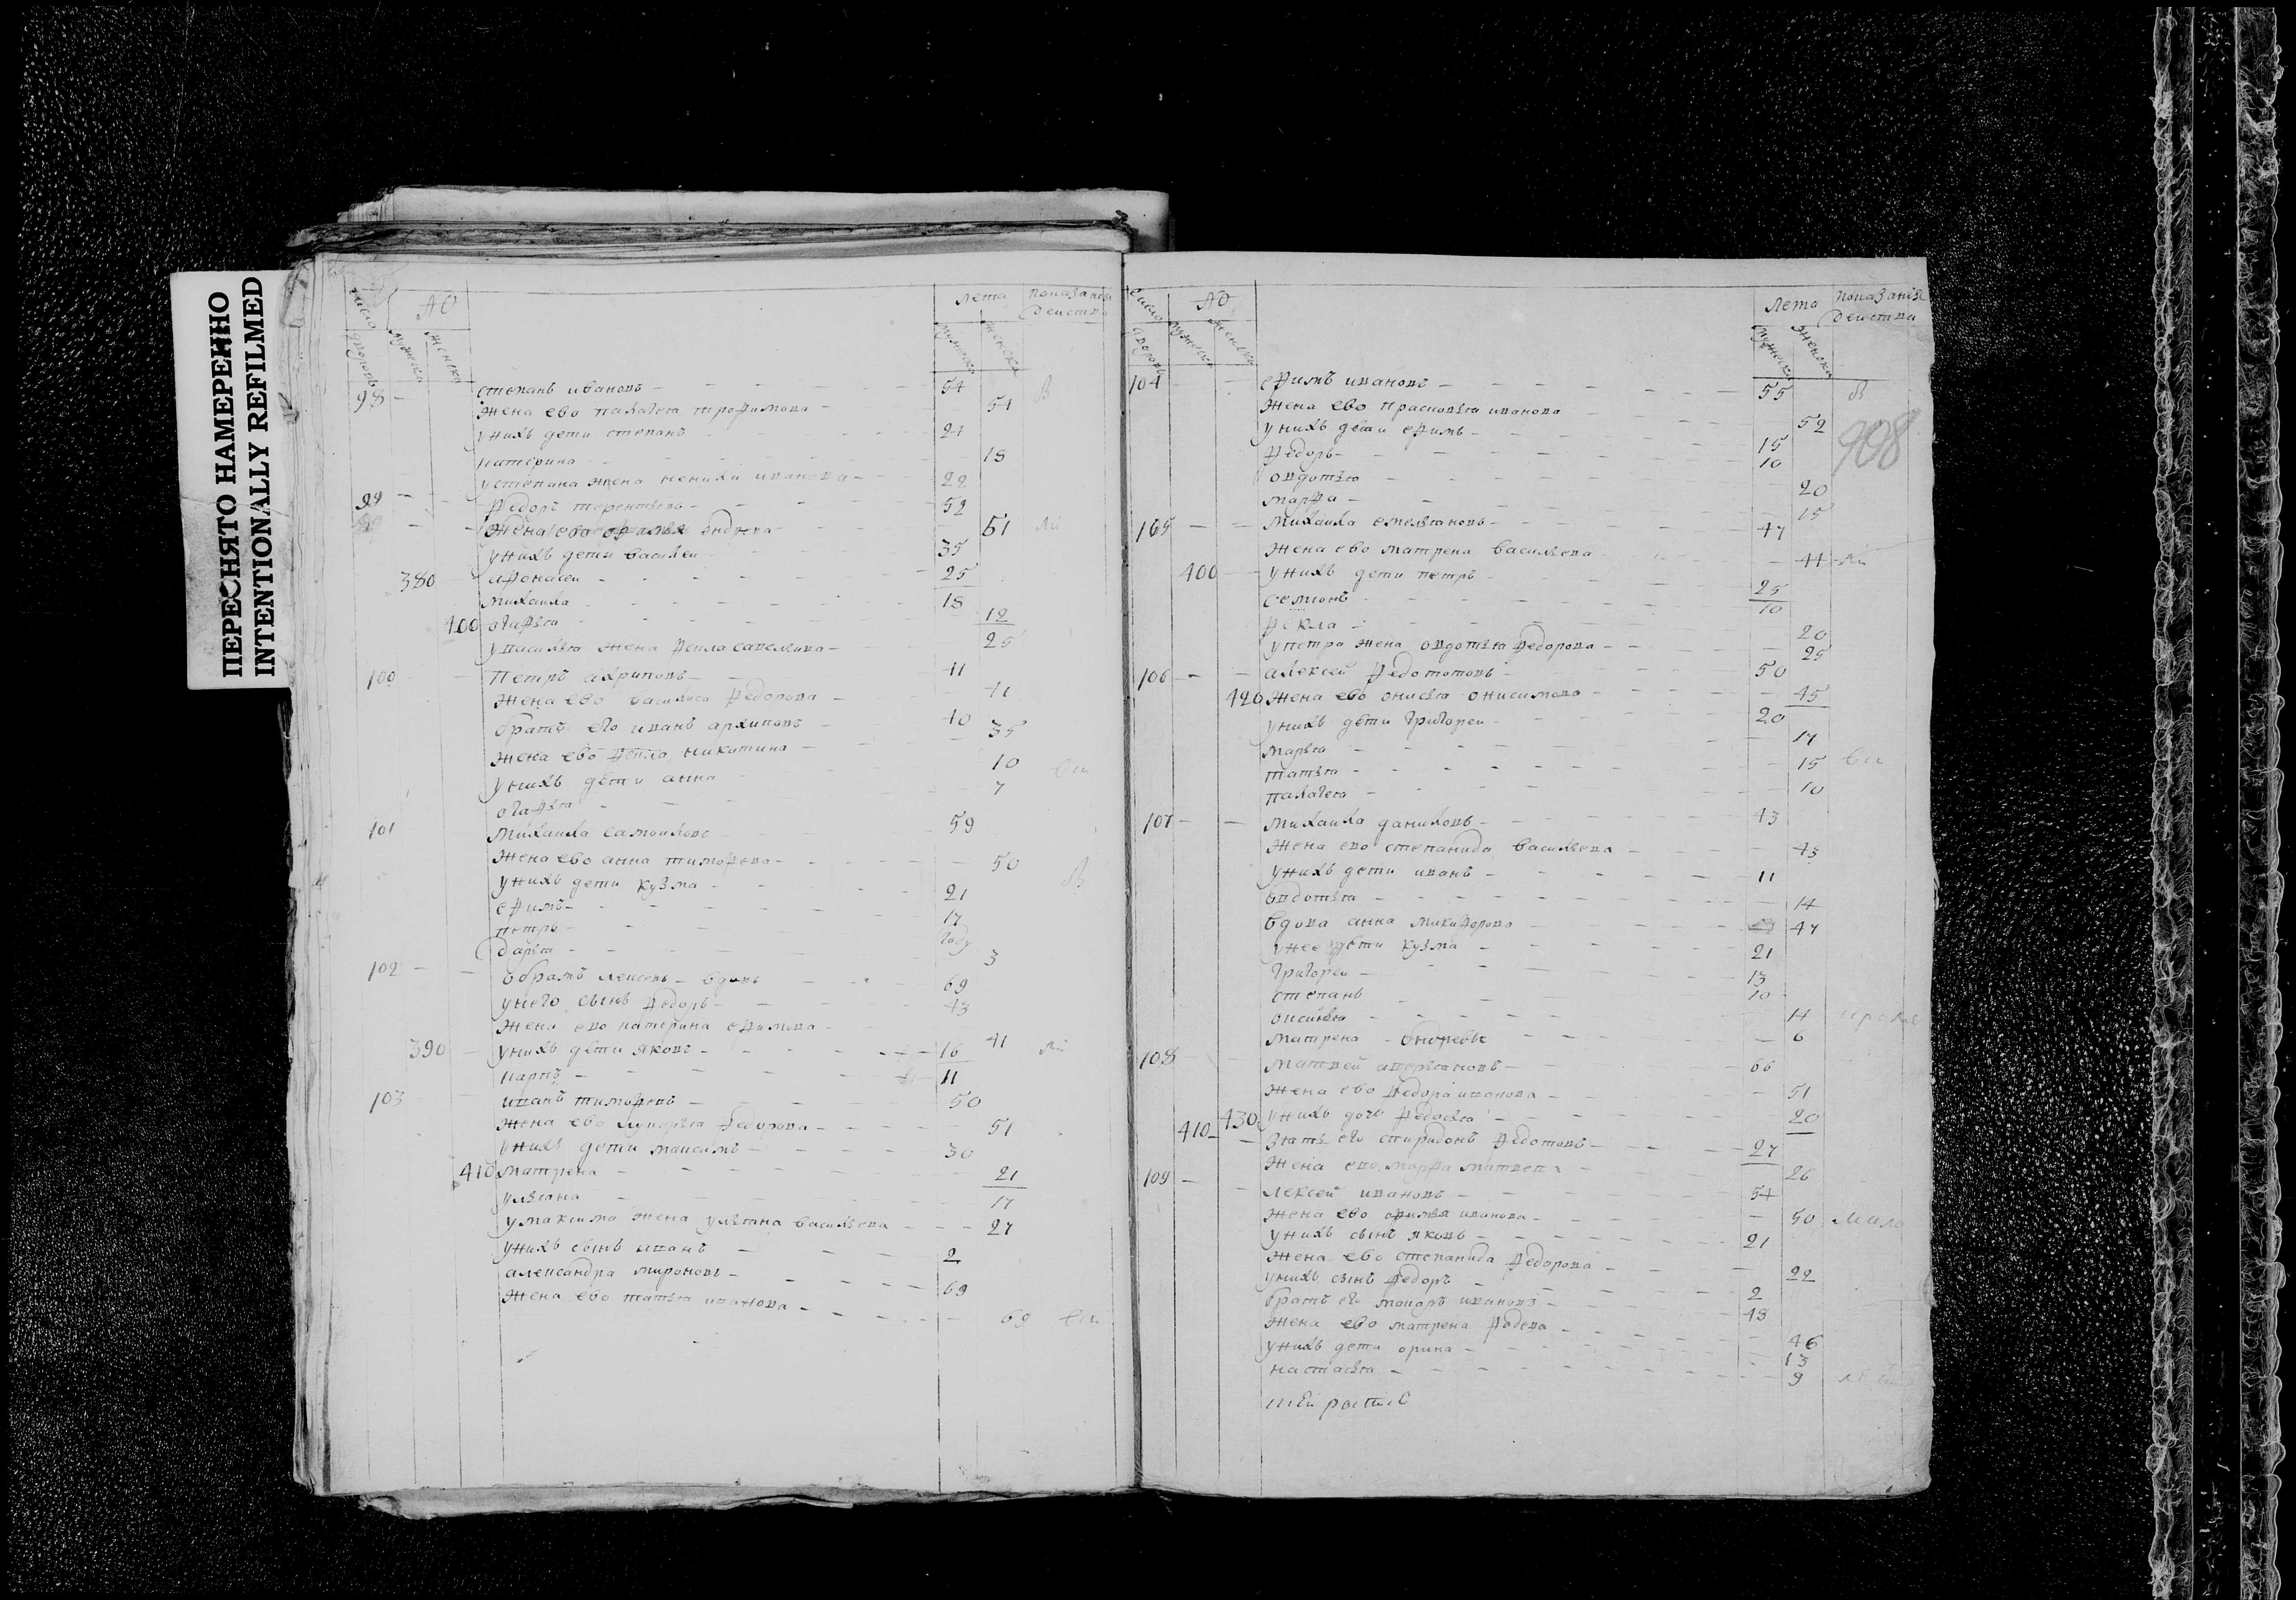 ПЕРЕСНЯТО НАМЕРЕННО
INTENTIONALLY REFILMED
число дворовъ
мужеска
женска
лета
показания
действа
мужеска
женска
98 степанъ ивановъ 54
жена ево палагея трофимова 54
у нихъ дети степанъ 24
катерина 18
у степана жена иванова 22
99 федоръ терентьевъ 52
жена ево 51
у нихъ дети василей 35
380 афонасей 25
михаила 18
400 огафья 12
у василья жена фекла савельива 25
100 Петръ архиповъ 41
жена ево василиса федорова 41
братъ его иванъ архиповъ 40
жена ево фекла никитина 35
у нихъ дети анна 10
огафья 7
101 михаила самоиловъ 59
жена ево анна тимофева 50
у нихъ дети кузма 21
ефимъ 17
петръ году
дарья 3
102 вдовъ 69
у него сынъ федоръ 43
жена ево катерина ефимова 41
390 у нихъ дети яковъ 16
карпъ 11
103 иванъ тимофевъ 50
жена ево лукерья федорова 51
у нихъ дети максимъ 30
410 матрена 21
ульяна 17
у максима жена ульяна васильева 27
у нихъ сынъ иванъ 2
александра мироновъ 69
жена ево татья иванова 69
число дворовъ
мужеска
женска
лета
показания
действа
мужеска
женска
908
104 ефимъ ивановъ 55
жена ево прасковья иванова 52
у нихъ дети ефимъ 15
федоръ 10
овдотья 20
марфа 15
105 михаила емельяновъ 47
жена ево матрена васильева 44
400 у нихъ дети петръ 25
семионъ 10
фекла 20
у петра жена овдотья федорова 25
106 алексей федототовъ 50
420 жена ево онисья онисимова 45
у нихъ дети григореи 20
марья 17
татья 15
палагея 10
107 михаила даниловъ 43
жена ево степанида васильева 43
у нихъ дети иванъ 11
овдотья 14
вдова анна микифорова 47
у нее дети кузма 21
григореи 13
степанъ 10
14
матрена 6
108 матвей аверьяновъ 66
жена ево федора иванова 51
430 у нихъ дочь федосья 20
410 зять его спиридонъ федотовъ 27
жена ево марфа матвева 26
109 лексей ивановъ 54
жена ево офимья иванова 50
у нихъ сынъ яковъ 21
жена ево степанида федорова 22
у нихъ сынъ федоръ 2
братъ его макаръ ивановъ 48
жена ево матрена фадева 46
у нихъ дети орина 13
настасья 9